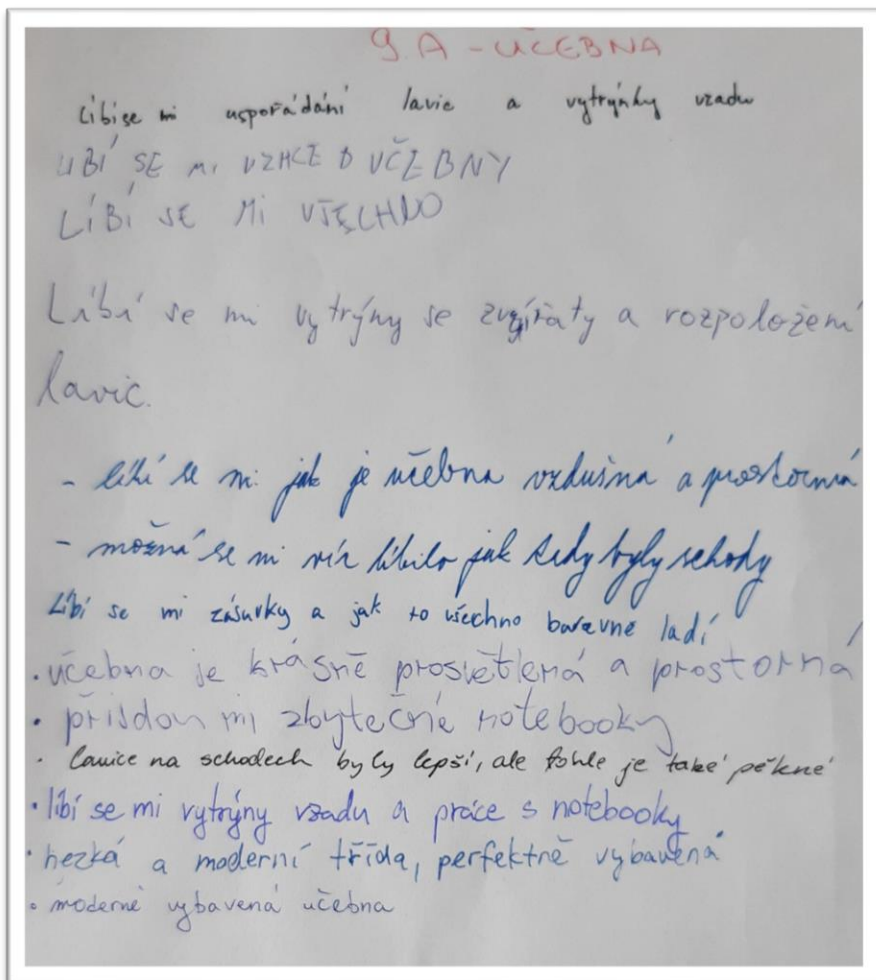 9.A - UČEBNA
Líbí se mi uspořádání lavic a vytrýnky vzadu
LÍBÍ SE MI VZHLED UČEBNY
LÍBÍ SE MI VŠECHNO
Líbí se mi vytrýny se zvířaty a rozpoložení
lavic.
- líbí se mi jak je učebna vzdušná a prostorná
- možná se mi víc líbilo jak tedy byly schody
Líbí se mi zásuvky a jak to všechno barevně ladí
• učebna je krásně prosvětlená a prostorná
• přijdou mi zbytečné notebooky
• lavice na schodech byly lepší, ale tohle je také pěkné
• líbí se mi vytrýny vzadu a práce s notebooky
• hezká a moderní třída, perfektně vybavená
• moderně vybavená učebna